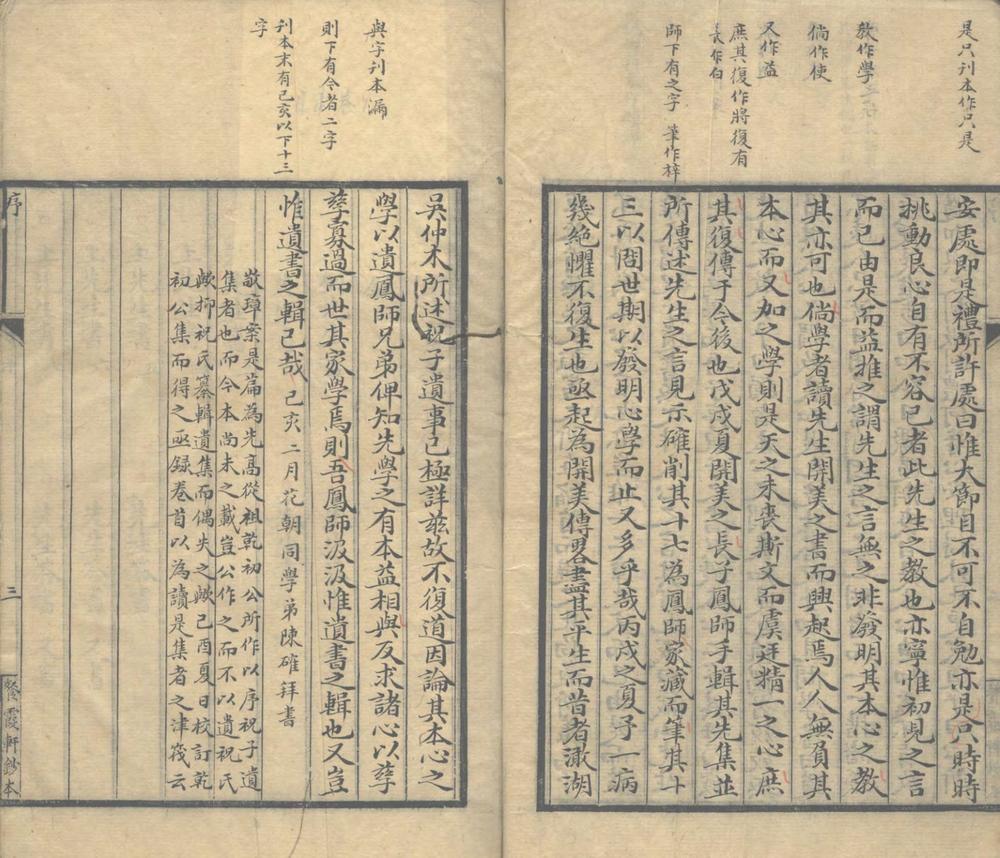 是只刊本作只是
教作學
倘作使
又作益
庶其復作將復有
長作白
師下有之字 筆作梓
安處即是禮所許處曰惟大節目不可不自勉亦是只時時
挑動良心自有不容已者此先生之教也亦寧惟初見之言
而已由是而益推之謂先生之言無之非發明其本心之教
其亦可也倘學者讀先生開美之書而興起焉人人無負其
本心而又加之學則是天之未喪斯文而虞廷精一之心庶
其復傳于今後也戊戌夏開美之長子鳳師手輯其先集並
所傳述先生之言見示確削其十七為鳳師家藏而筆其十
三以問世期以發明心學而止又多乎哉丙戌之夏予一病
幾絕懼不復生也亟起為開美傳畧盡其平生而昔者澉湖
與字刊本漏
則下有今者二字
刊本末有己亥以下十三
字
吳仲木所述祝子遺事已極詳茲故不復道因論其本心之
學以遺鳳師兄弟俾知先學之有本益相與反求諸心以孳
孳寡過而世其家學焉則吾鳳師汲汲惟遺書之輯也又豈
惟遺書之輯已哉 己亥二月花朝同學弟陳確拜書
敬璋案是篇為先高從祖乾初公所作以序祝子遺
集者也而今本尚未之載豈公作之而不以遺祝氏
歟抑祝氏纂輯遺集而偶失之歟己酉夏日校訂乾
初公集而得之亟録卷首以為讀是集者之津筏云
序
三
餐霞軒鈔本